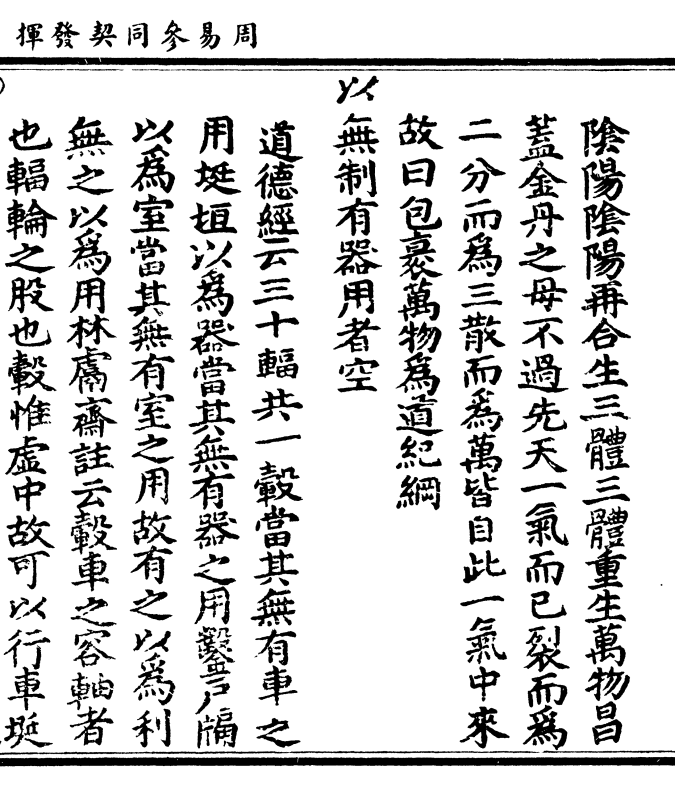 周易參同契發揮
陰陽陰陽再合生三體三體重生萬物昌
蓋金丹之母不過先天一氣而已裂而爲
二分而爲三散而爲萬皆自此一氣中來
故曰包裹萬物爲道紀綱
以無制有器用者空
道德經云三十輻共一轂當其無有車之
用埏垣以爲器當其無有器之用鑿戶牖
以爲室當其無有室之用故有之以爲利
無之以爲用林鬳齋註云轂車之容軸者
也輻輪之股也轂惟虛中故可以行車埏